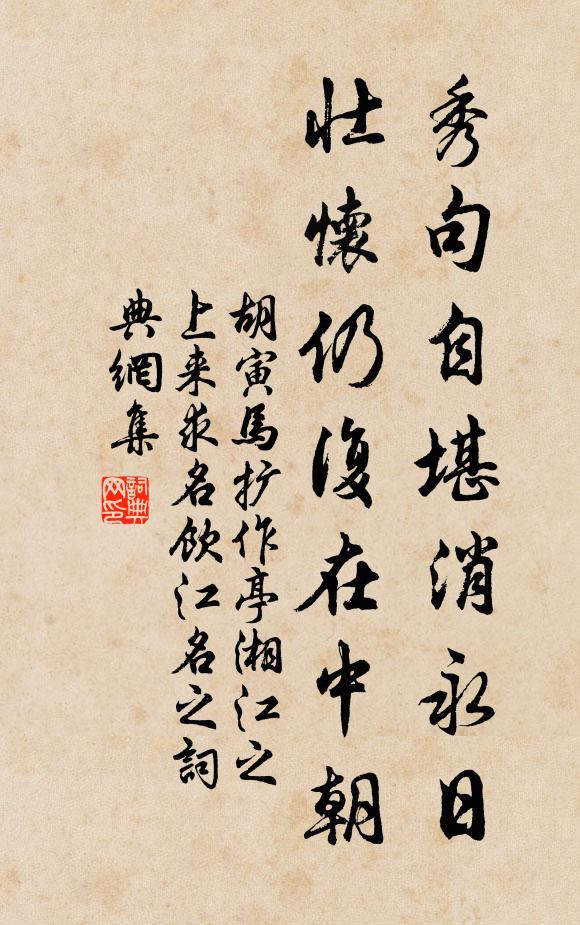 秀句自堪消永日
壮懷仍復在中朝
胡寅馬扩作亭湘江之
上来求名飲江名之詞
典網集
詞典网印